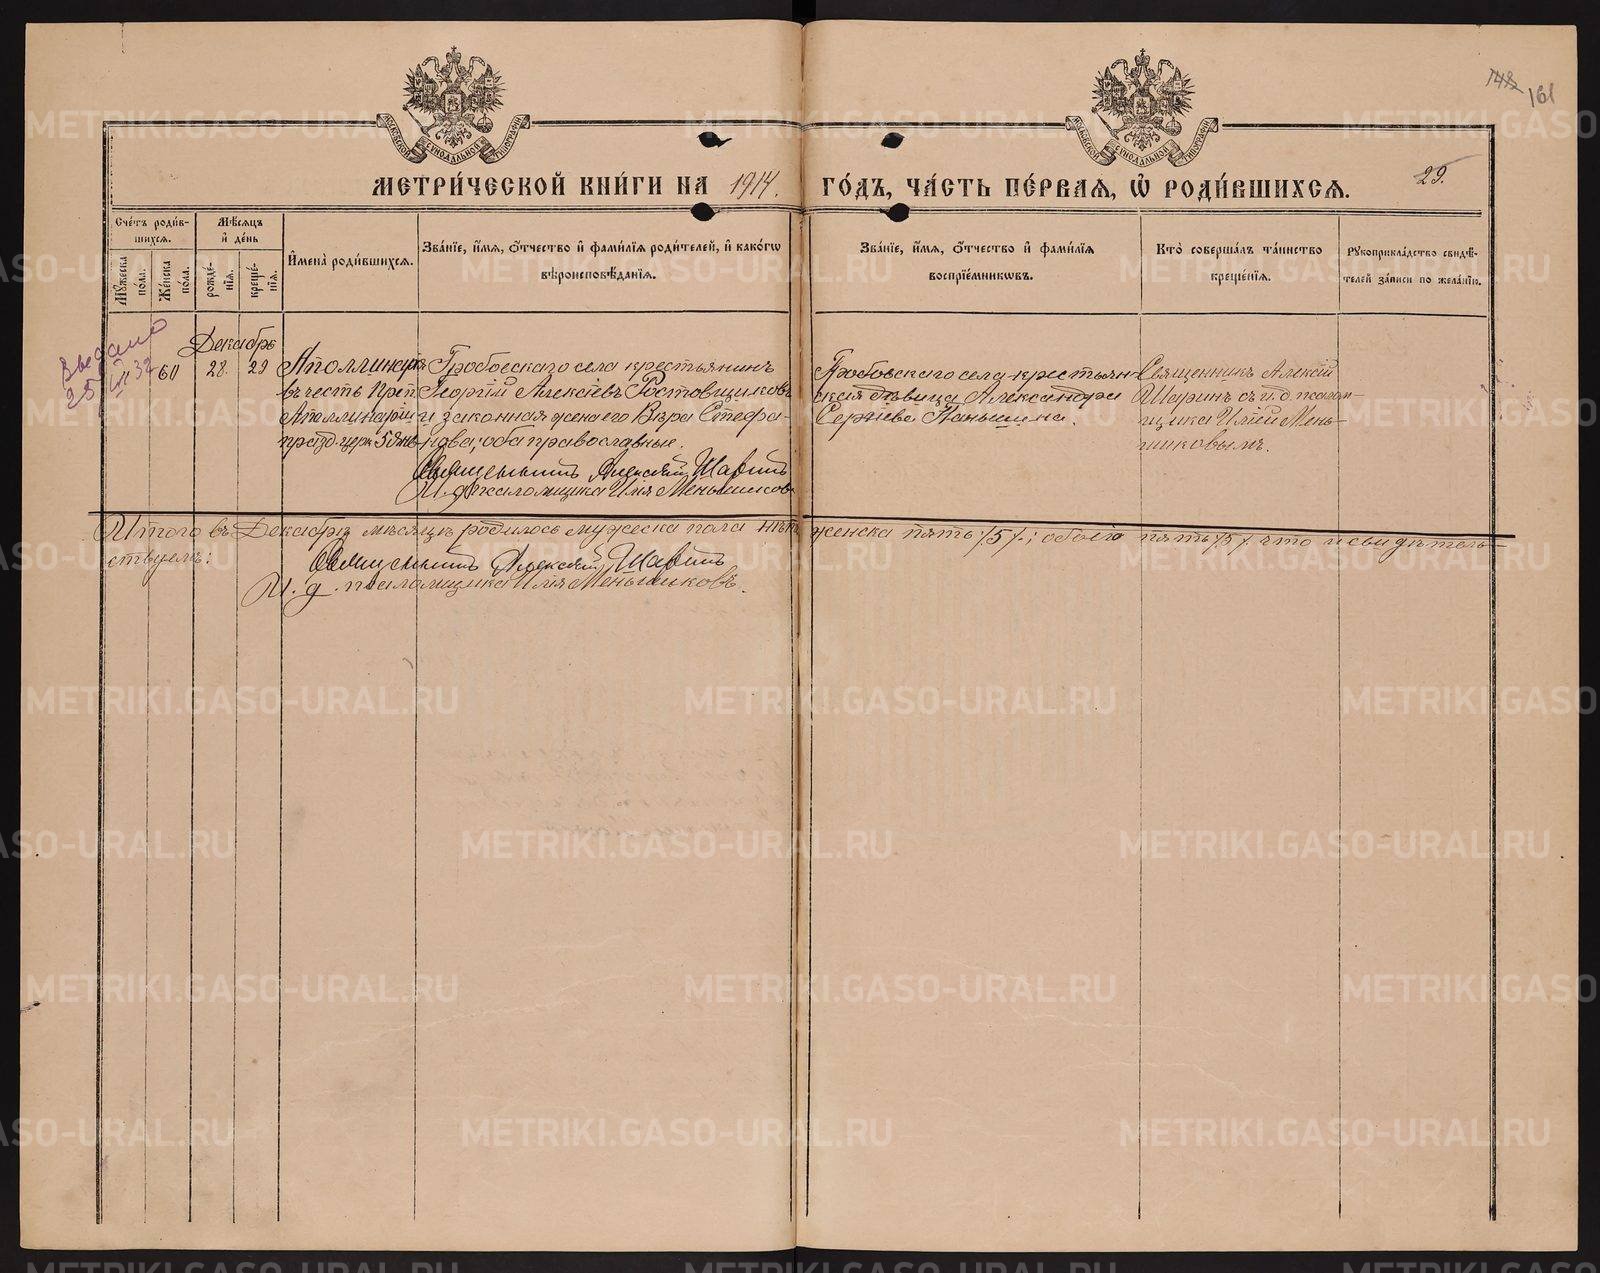 148 161
МОСКОВСКОЙ СУНОДАЛЬНОЙ ТИПОГРАФІИ
МОСКОВСКОЙ СУНОДАЛЬНОЙ ТИПОГРАФІИ
МЕТРИ́ЧЕСКОЙ КНИ́ГИ НА 1914. ГО́ДЪ, ЧА́СТЬ ПЕ́РВАЯ, Ѡ҆ РОДИ́ВШИХСЯ. 29.
Сче́тъ роди́в-
шихся.
Мꙋ́жеска по́ла.
Же́нска по́ла.
Мѣ́сяцъ и҆ де́нь
рожде́-
нїя.
креще́-
нїя.
И҆мена̀ роди́вшихся.
Зва́нїе, и҆́мя, ѻ҆́тчество и҆ фами́лїя роди́телей, и҆ како́гѡ
вѣроисповѣ́данїя.
Зва́нїе, и҆́мя, ѻ҆́тчество и҆ фами́лїя
воспрїе́мникѡвъ.
Кто̀ соверша́лъ та́инство
креще́нїя.
Рꙋкоприкла́дство свидѣ́-
телей за́писи по жела́нїю.
Декабрь
60 28. 29
Аполлинарія
въ честь Преп.
Аполлинаріи
празд. церк. 5 Янв.
Гробовскаго села крестьянинъ
Георгій Алексіевъ Ростовщиковъ
и законная жена его Вѣра Стефа-
нова; оба православные.
Священникъ Алексій Шаринъ
И. д. псаломщика Илія Меньшиковъ
Гробовскаго села крестьян-
ская дѣвица Александра
Сергіева Паньшина.
Священникъ Алексій
Шаринъ съ и. д. псалом-
щика Иліей Мень-
шиковымъ.
Итого въ Декабрѣ мѣсяцѣ родилось мужеска пола нѣтъ женска пять /5/; обоего пять /5/ что и свидѣтель-
ствуемъ:
Священникъ Алексій Шаринъ
И. д. псаломщика Илія Меньшиковъ.
METRIKI.GASO-URAL.RU